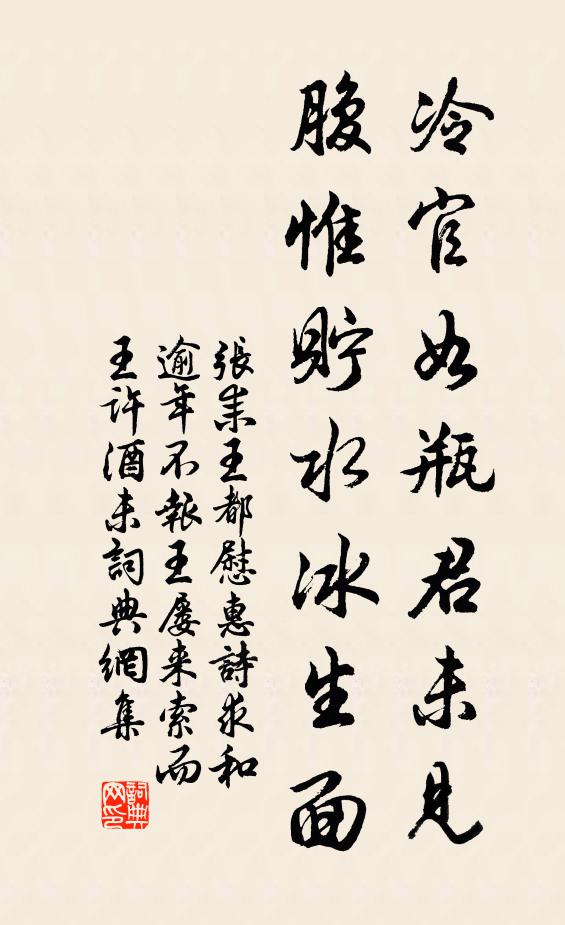 冷官如瓶君未見
腹惟貯水冰生面
張耒王都慰惠詩求和
逾年不報王屡来索而
王許酒未詞典網集
詞典
网印